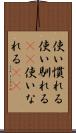 使い慣れる
使い馴れる
《《使いな
れる《《